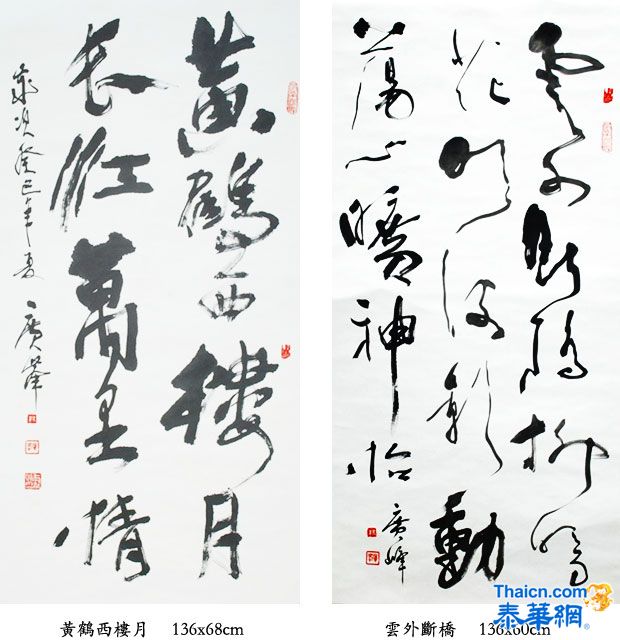 黃鶴西樓月
長江萬里情
歲次癸巳年春 廣峰
雲外斷橋柳暗
花明波影動
蕩心曠神怡
廣峰
黃鶴西樓月 136x68cm
雲外斷橋 136x60cm
Thaicn.com
泰華網